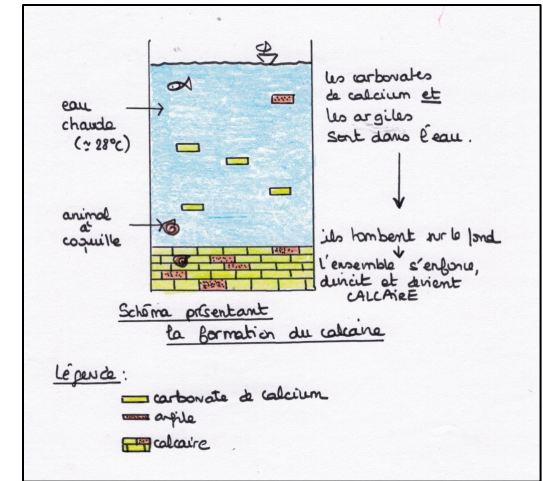 eau
chaude
(≈ 28°C)
animal
à
coquille
les carbonates
de calcium et
les argiles
sont dans l'eau.
ils tombent sur le fond
l'ensemble s'enfonce,
durcit et devient
CALCAIRE
Schéma présentant
la formation du calcaire
Légende :
carbonate de calcium
argile
calcaire